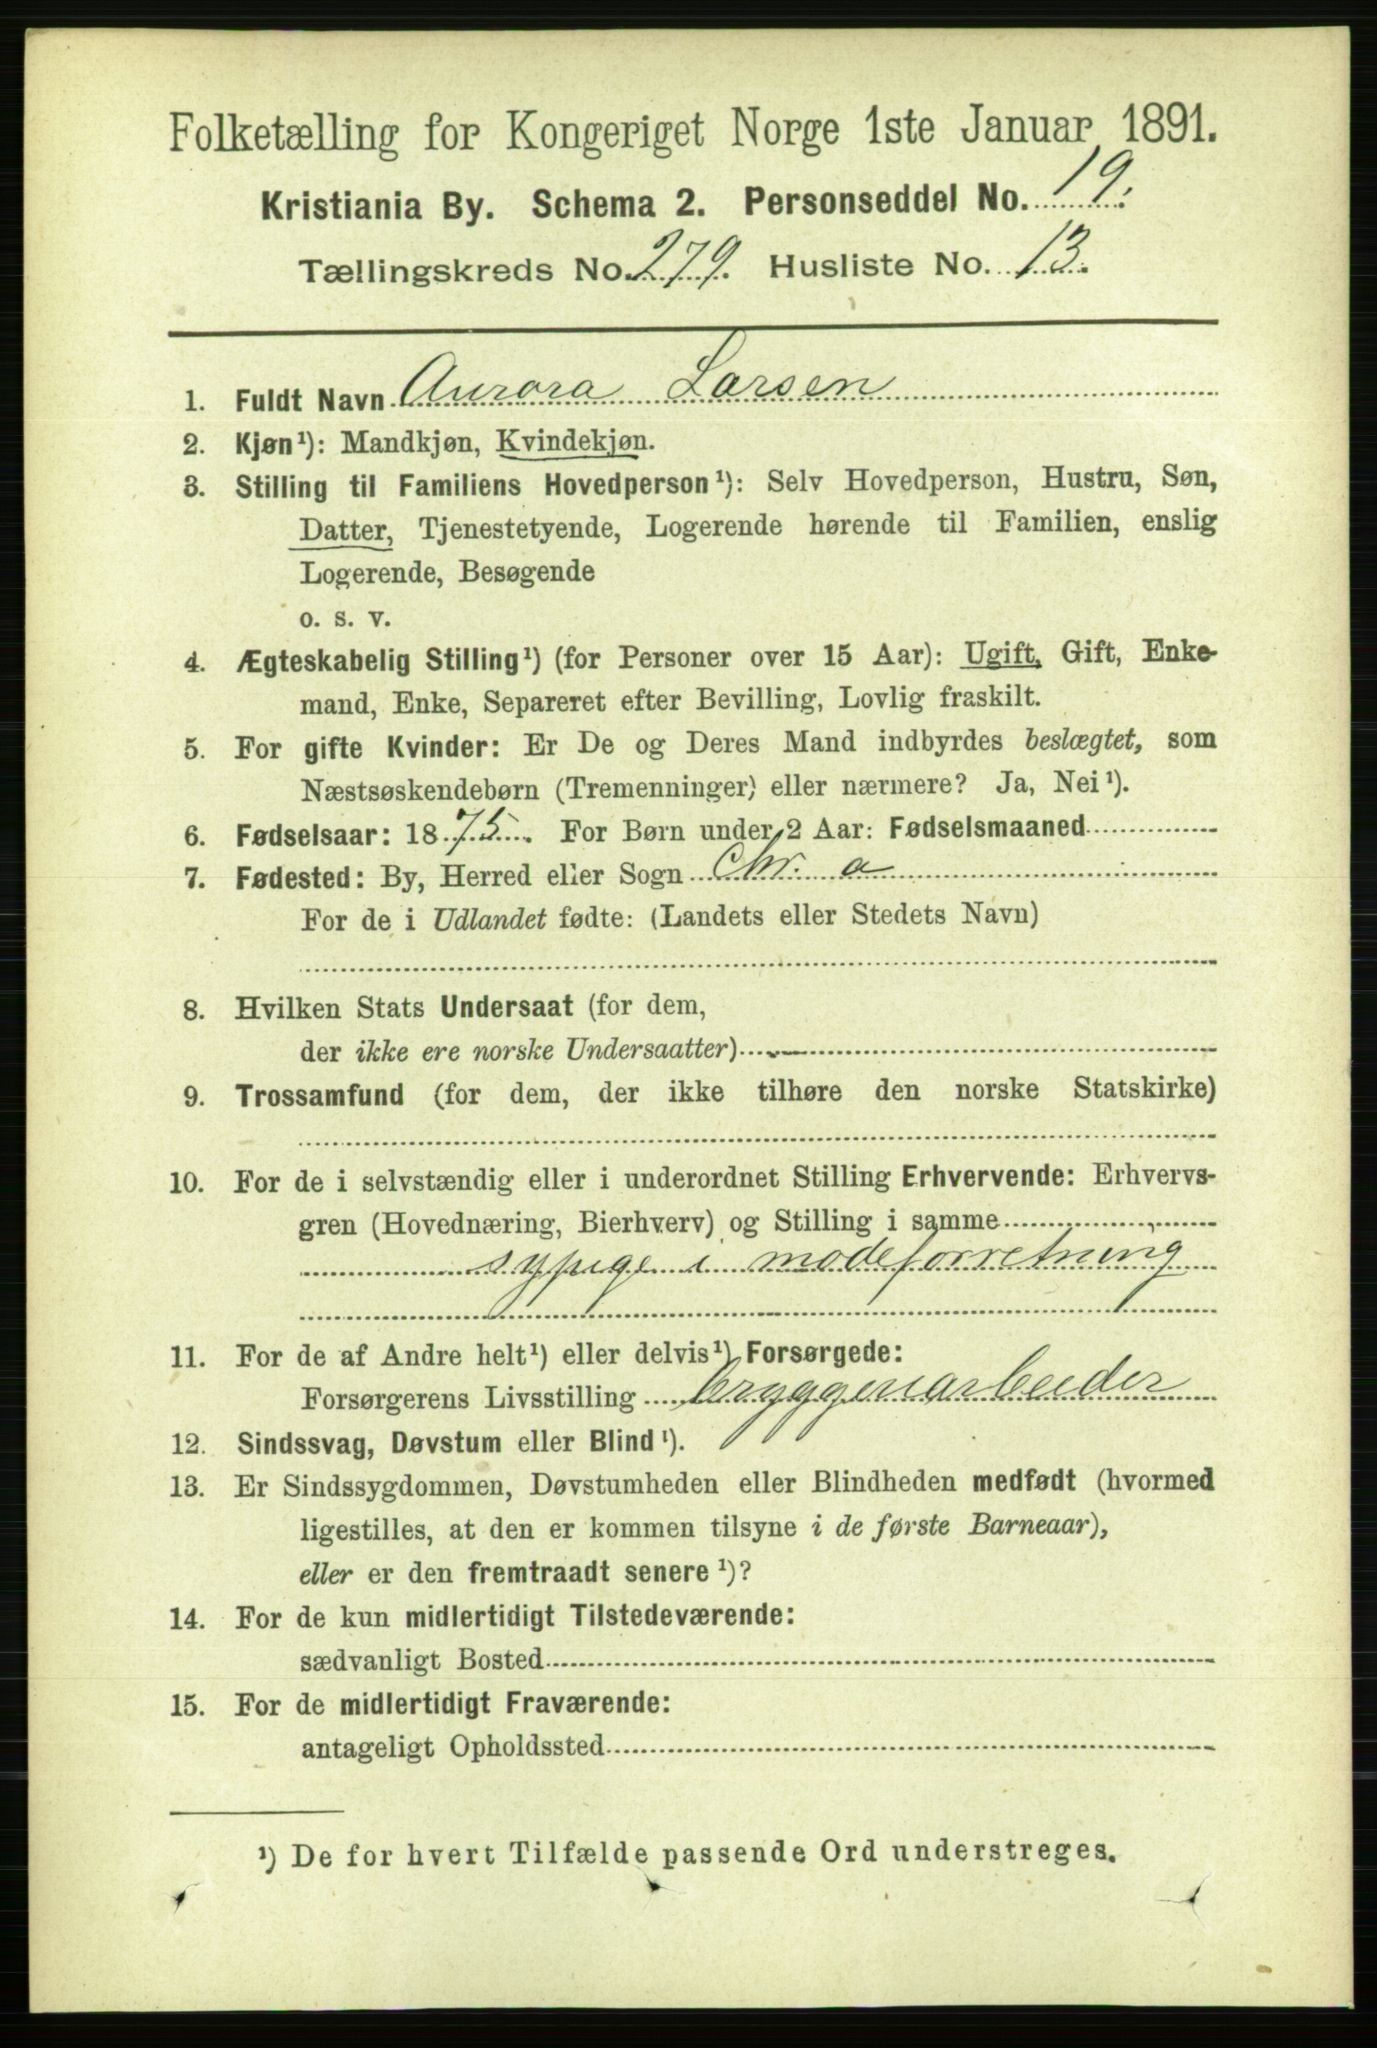 Folketælling for Kongeriget Norge 1ste Januar 1891.
Kristiania By. Schema 2. Personseddel No. 19.
Tællingskreds No. 279. Husliste No. 13.
1. Fuldt Navn Aurora Larsen
2. Kjøn¹): Mandkjøn, Kvindekjøn.
3. Stilling til Familiens Hovedperson¹): Selv Hovedperson, Hustru, Søn,
Datter, Tjenestetyende, Logerende hørende til Familien, enslig
Logerende, Besøgende
o. s. v.
4. Ægteskabelig Stilling¹) (for Personer over 15 Aar): Ugift, Gift, Enke-
mand, Enke, Separeret efter Bevilling, Lovlig fraskilt.
5. For gifte Kvinder: Er De og Deres Mand indbyrdes beslægtet, som
Næstsøskendebørn (Tremenninger) eller nærmere? Ja, Nei¹).
6. Fødselsaar: 1875. For Børn under 2 Aar: Fødselsmaaned
7. Fødested: By, Herred eller Sogn Chr. a
For de i Udlandet fødte: (Landets eller Stedets Navn)
8. Hvilken Stats Undersaat (for dem,
der ikke ere norske Undersaatter)
9. Trossamfund (for dem, der ikke tilhøre den norske Statskirke)
10. For de i selvstændig eller i underordnet Stilling Erhvervende: Erhvervs-
gren (Hovednæring, Bierhverv) og Stilling i samme
sypige i modeforretning
11. For de af Andre helt¹) eller delvis¹) Forsørgede:
Forsørgerens Livsstilling bryggeriarbeider
12. Sindssvag, Døvstum eller Blind¹).
13. Er Sindssygdommen, Døvstumheden eller Blindheden medfødt (hvormed
ligestilles, at den er kommen tilsyne i de første Barneaar),
eller er den fremtraadt senere¹)?
14. For de kun midlertidigt Tilstedeværende:
sædvanligt Bosted
15. For de midlertidigt Fraværende:
antageligt Opholdssted
¹) De for hvert Tilfælde passende Ord understreges.